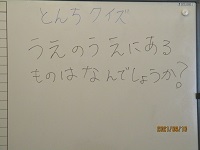 とんちクイズ
うえのうえにある
ものはなんでしょうか?
2021/06/10